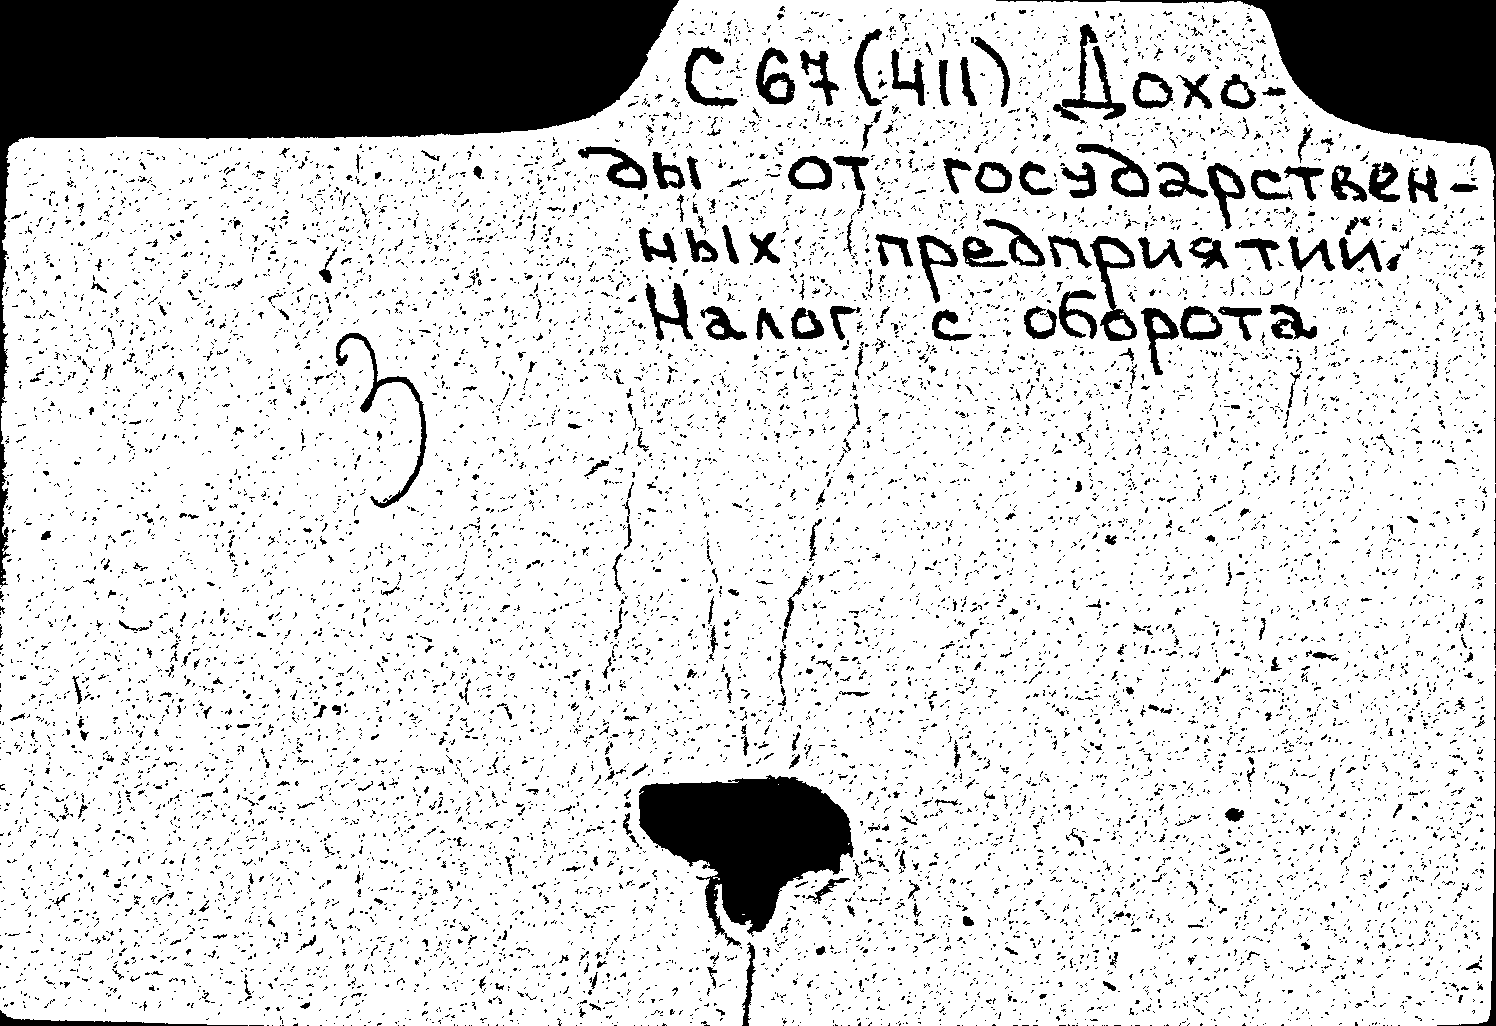 С67(411) Дохо-
ды от государствен-
ных предприятий.
Налог с оборота
3